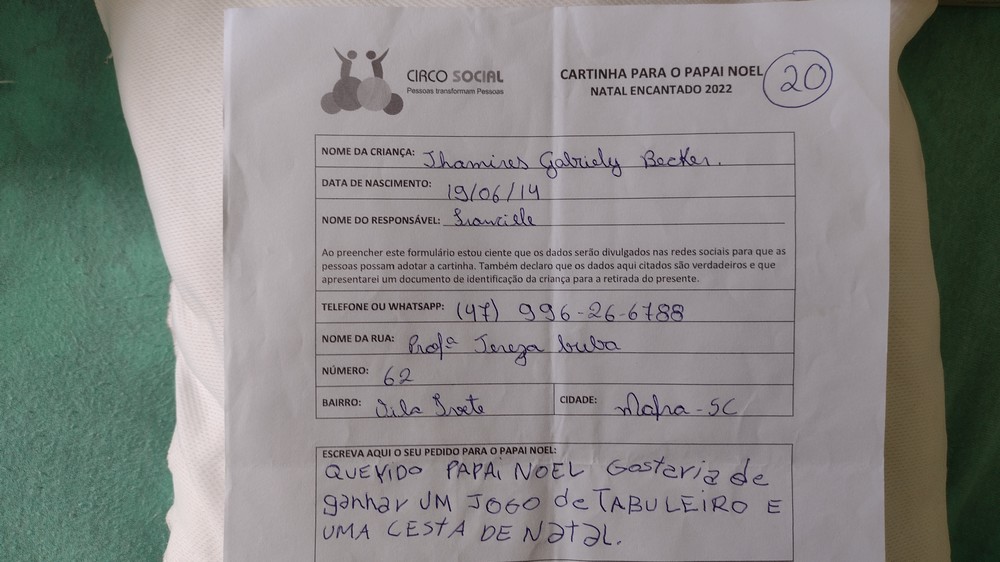 CIRCO SOCIAL
Pessoas transformam Pessoas
CARTINHA PARA O PAPAI NOEL
NATAL ENCANTADO 2022
20
NOME DA CRIANÇA: Jhamires Gabriely Becker.
DATA DE NASCIMENTO: 19/06/14
NOME DO RESPONSÁVEL: Franciele
Ao preencher este formulário estou ciente que os dados serão divulgados nas redes sociais para que as
pessoas possam adotar a cartinha. Também declaro que os dados aqui citados são verdadeiros e que
apresentarei um documento de identificação da criança para a retirada do presente.
TELEFONE OU WHATSAPP: (47) 996-26-6788
NOME DA RUA: Profª Tereza
NÚMERO: 62
BAIRRO: Vila
CIDADE: Mafra-SC
ESCREVA AQUI O SEU PEDIDO PARA O PAPAI NOEL:
QUERIDO PAPAI NOEL Gostaria de
ganhar UM JOGO de TABULEIRO E
UMA CESTA DE NataL.